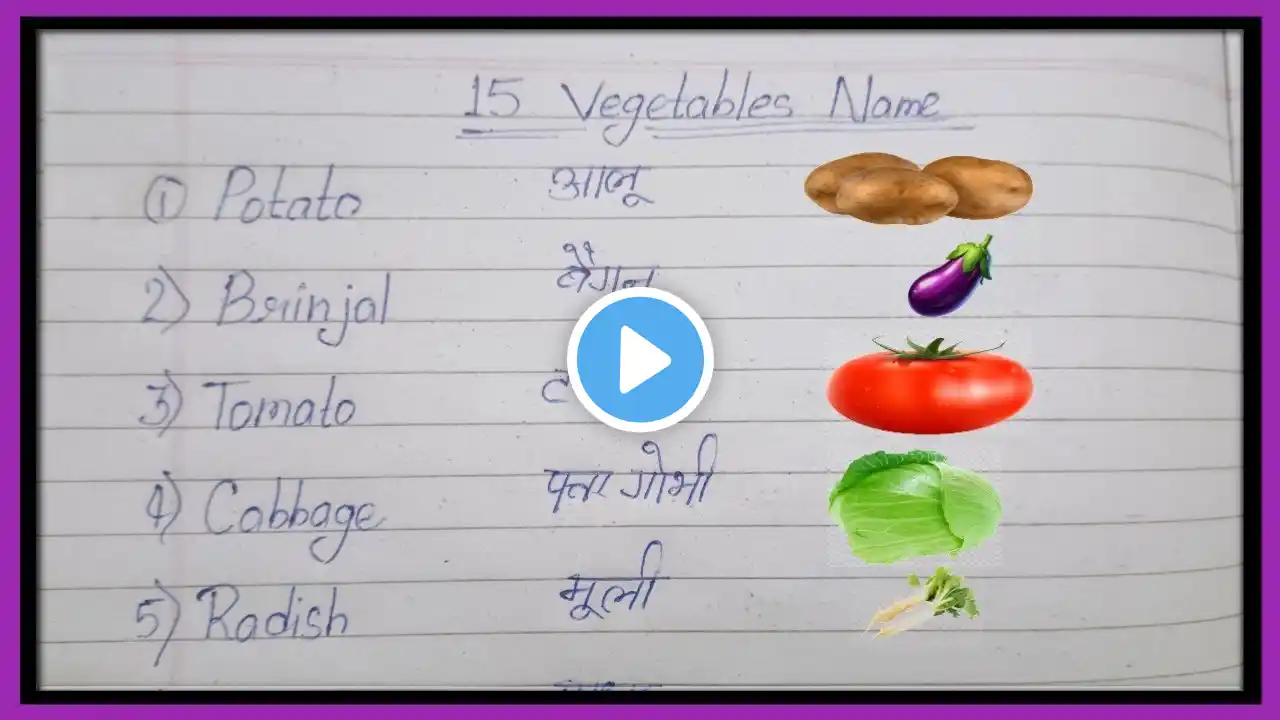 15 Vegetables Name
① Potato आलू
2) Brinjal बैगन
3) Tomato
4) Cabbage पत्ता गोभी
5) Radish मूली